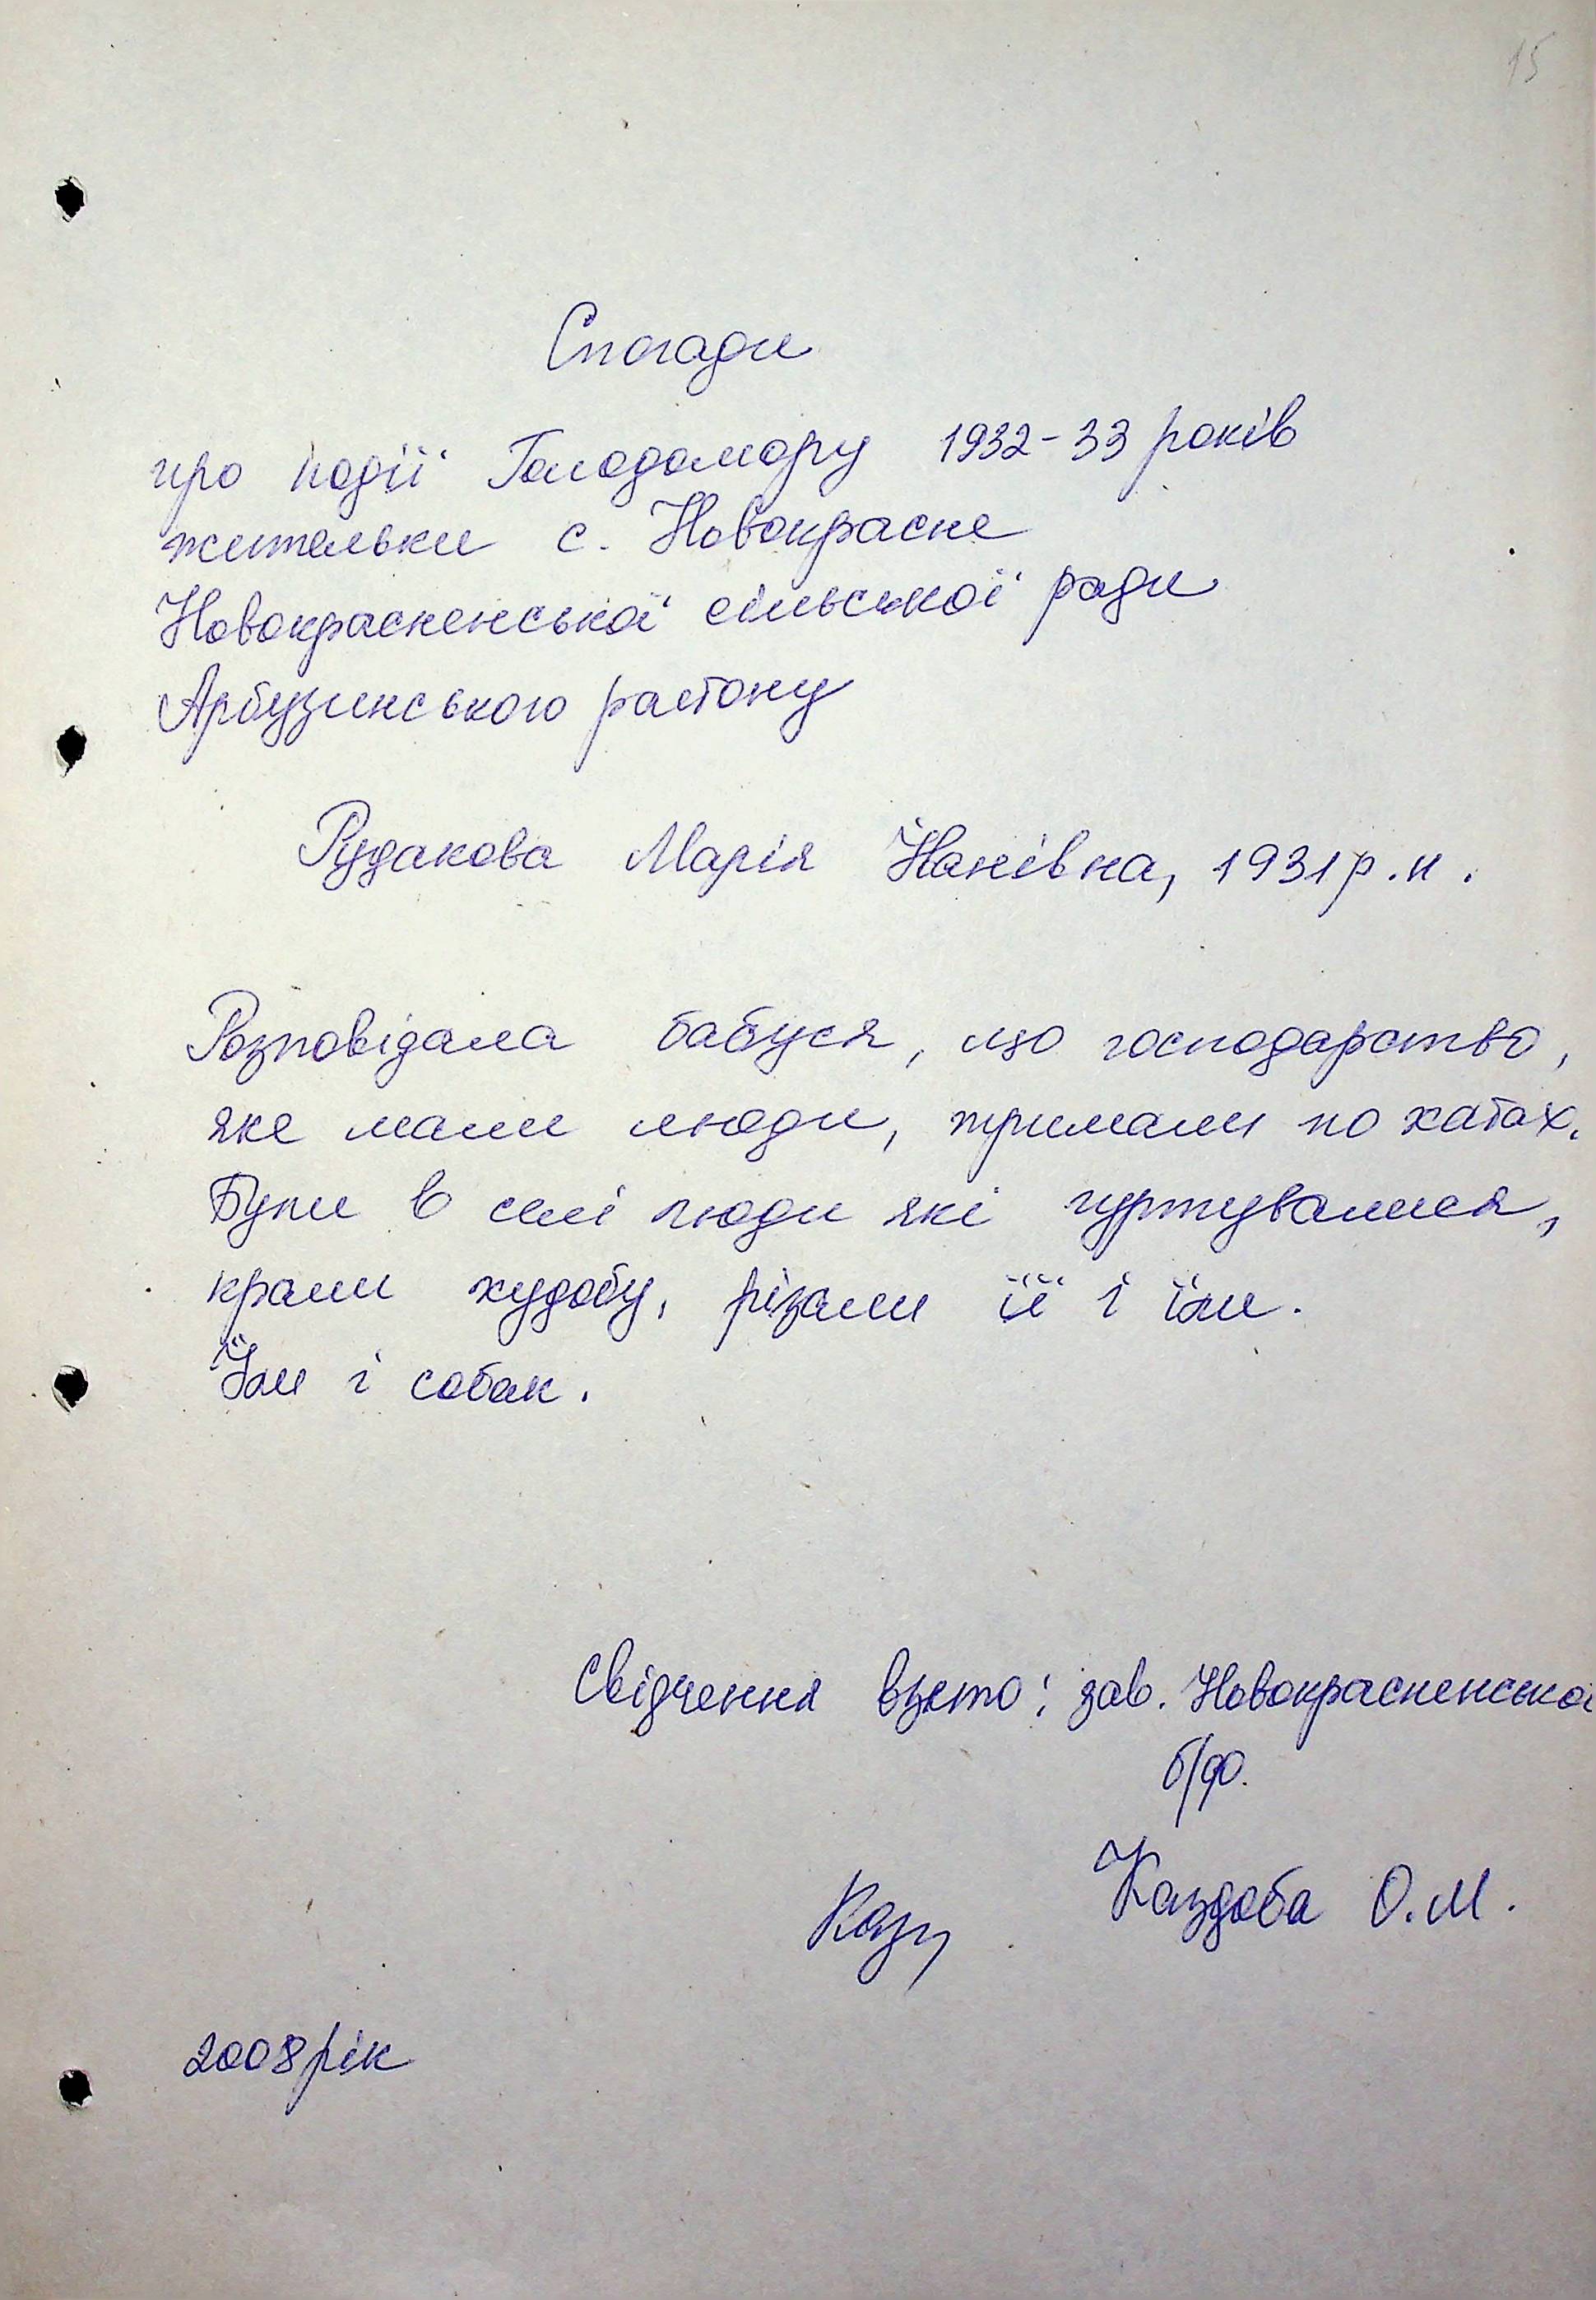 15
Спогади
про події Голодомору 1932-33 років
жительки с. Новокрасне
Новокрасненської сільської ради
Арбузинського району
Рудакова Марія Йонівна, 1931 р.н.
Розповідала бабуся, що господарство,
яке мали люди, тримали по хатах.
Були в селі люди які гуртувалися,
крали худобу, різали її і їли.
Їли і собак.
Свідчення взято: зав. Новокрасненської
б/ф.
Каздоба О.М.
2008 рік